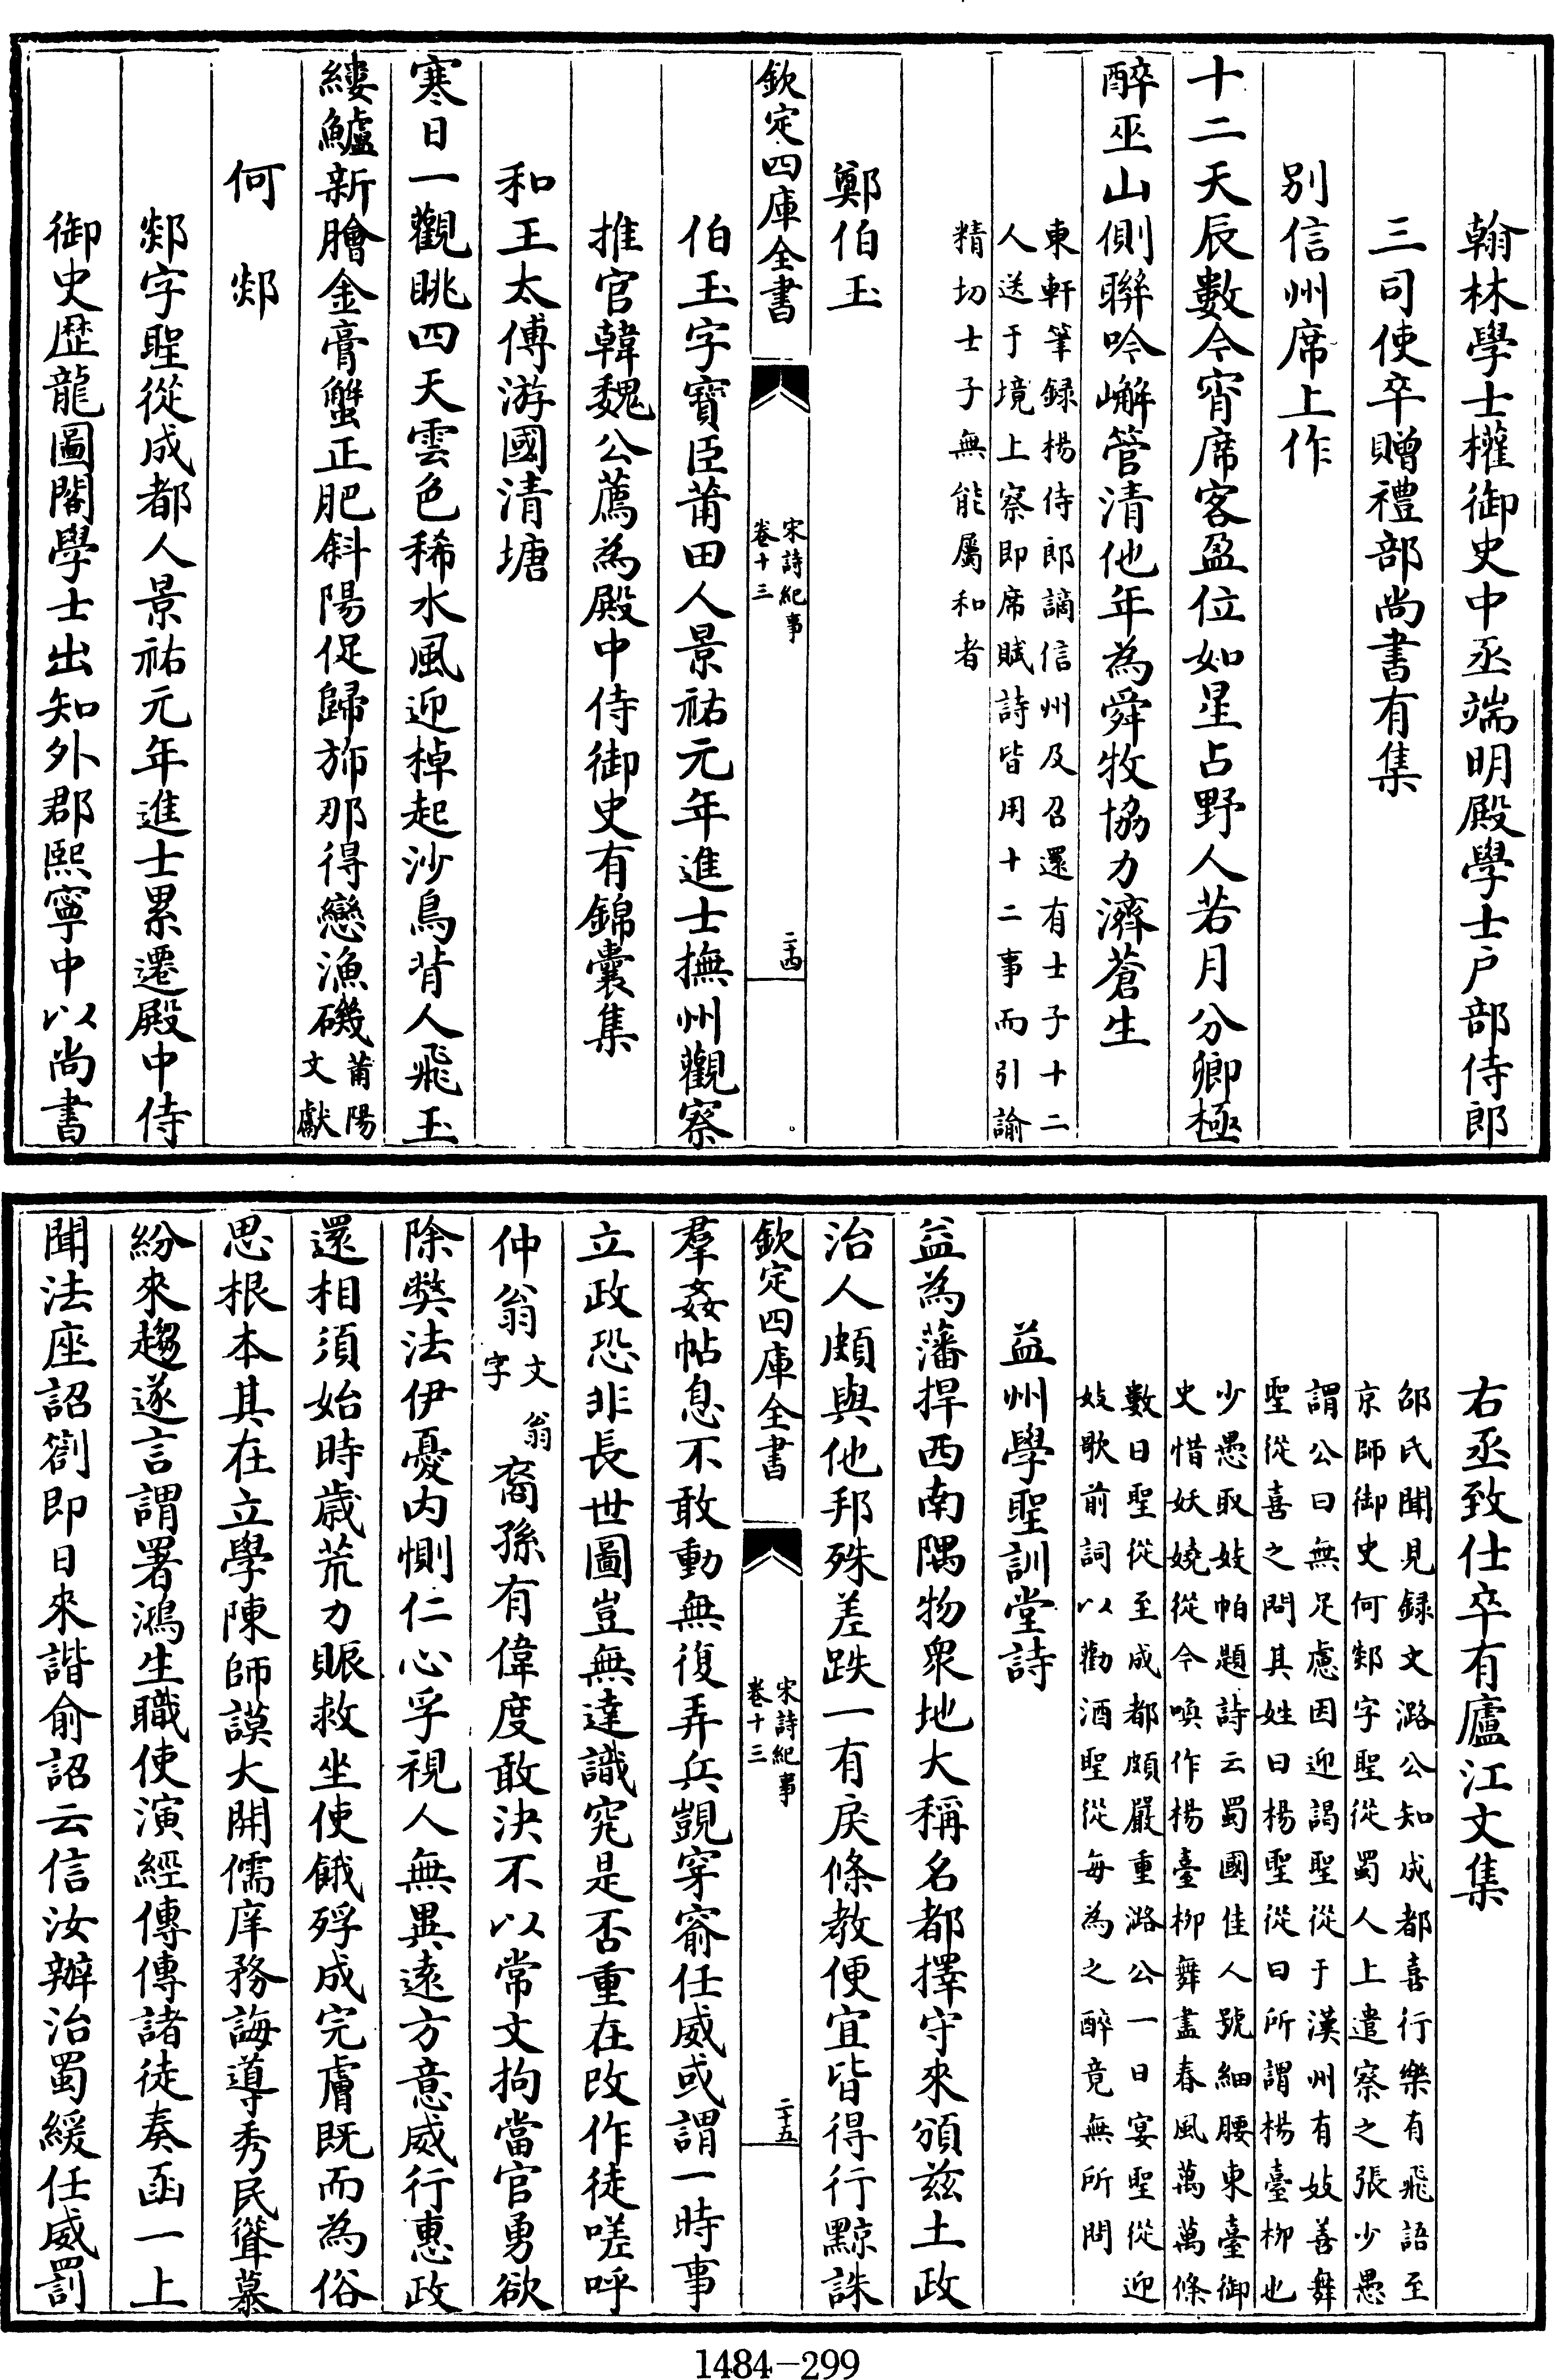 翰林學士權御史中丞端明殿學士户部侍郎
三司使卒贈禮部尚書有集
别信州席上作
十二天辰數今宵席客盈位如星占野人若月分卿極
醉巫山側聯吟嶰管清他年為舜牧協力濟蒼生
東軒筆録楊侍郎謫信州及召還有士子十二
人送于境上察即席賦詩皆用十二事而引諭
精切士子無能屬和者
鄭伯玉
欽定四庫全書
宋詩紀事
卷十三
二十四
伯玉字寶臣莆田人景祐元年進士撫州觀察
推官韓魏公薦為殿中侍御史有錦囊集
和王太傅游國清塘
寒日一觀眺四天雲色稀水風迎棹起沙鳥背人飛玉
縷鱸新膾金膏蟹正肥斜陽促歸斾那得戀漁磯莆陽
文獻
何郯
郯字聖從成都人景祐元年進士累遷殿中侍
御史歴龍圖閣學士出知外郡熙寧中以尚書
右丞致仕卒有廬江文集
邵氏聞見録文潞公知成都喜行樂有飛語至
京師御史何郯字聖從蜀人上遣察之張少愚
謂公曰無足慮因迎謁聖從于漢州有妓善舞
聖從喜之問其姓曰楊聖從曰所謂楊臺柳也
少愚取妓帕題詩云蜀國佳人號細腰東臺御
史惜妖嬈從今喚作楊臺柳舞盡春風萬萬條
數日聖從至成都頗嚴重潞公一日宴聖從迎
妓歌前詞以勸酒聖從每為之醉竟無所問
益州學聖訓堂詩
益為藩捍西南隅物衆地大稱名都擇守來頒兹土政
治人頗與他邦殊差跌一有戾條教便宜皆得行黥誅
欽定四庫全書
宋詩紀事
卷十三
二十五
羣姦帖息不敢動無復弄兵覬穿窬任威或謂一時事
立政恐非長世圖豈無達識究是否重在改作徒嗟呼
仲翁文翁
字裔孫有偉度敢決不以常文拘當官勇欲
除獘法伊憂内惻仁心孚視人無異逺方意威行惠政
還相須始時歳荒力賑救坐使餓殍成完膚既而為俗
思根本其在立學陳師謨大開儒庠務誨導秀民聳慕
紛來趨遂言謂署鴻生職使演經傳傳諸徒奏函一上
聞法座詔劄即日來諧俞詔云信汝辦治蜀緩任威罰
1484-299